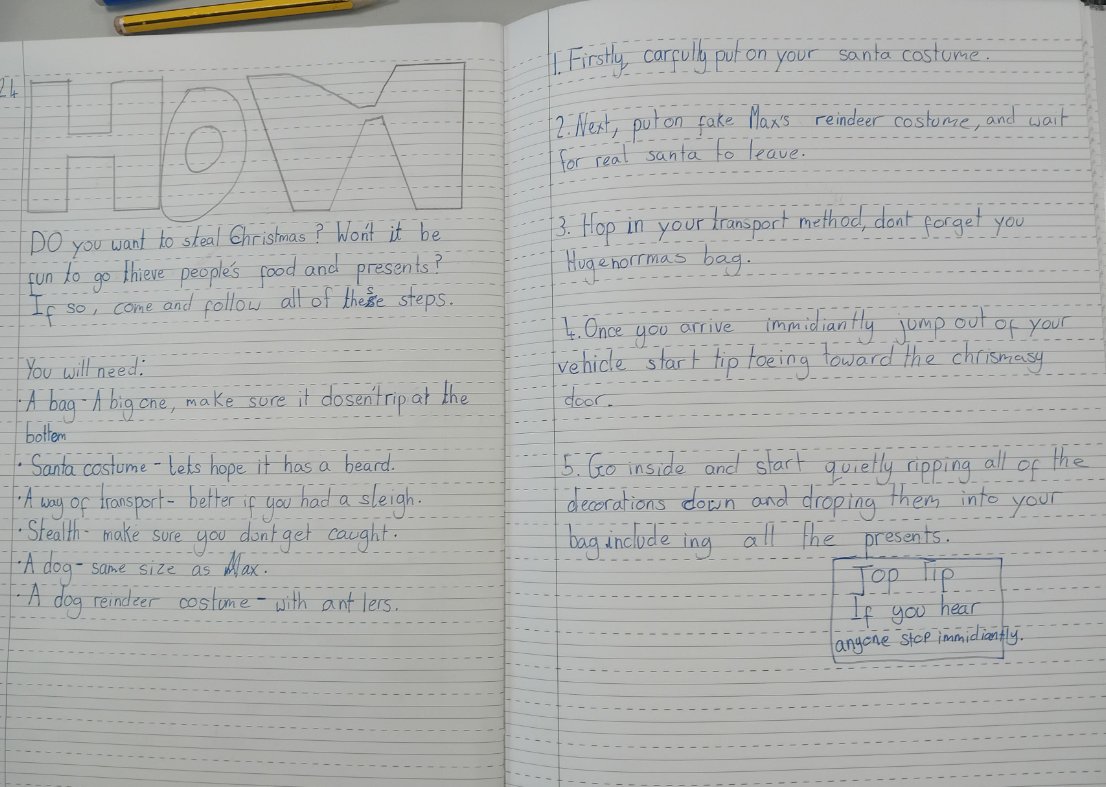 24
HOW
DO you want to steal Christmas? Won't it be
fun to go thieve people's food and presents?
If so, come and follow all of these steps.
You will need:
• A bag - A big one, make sure it dosen't rip at the
bottem
• Santa costume - Lets hope it has a beard.
• A way of transport - better if you had a sleigh.
• Stealth - make sure you dont get caught.
• A dog - same size as Max.
• A dog reindeer costume - with antlers.
1. Firstly, carfully put on your santa costume.
2. Next, put on fake Max's reindeer costume, and wait
for real santa to leave.
3. Hop in your transport method, dont forget you
Hugenorrmas bag.
4. Once you arrive immidiantly jump out of your
vehicle start tip toeing toward the chrismasy
door.
5. Go inside and start quietly ripping all of the
decorations down and droping them into your
bag include ing all the presents.
Top Tip
If you hear
anyone stop immidiantly.